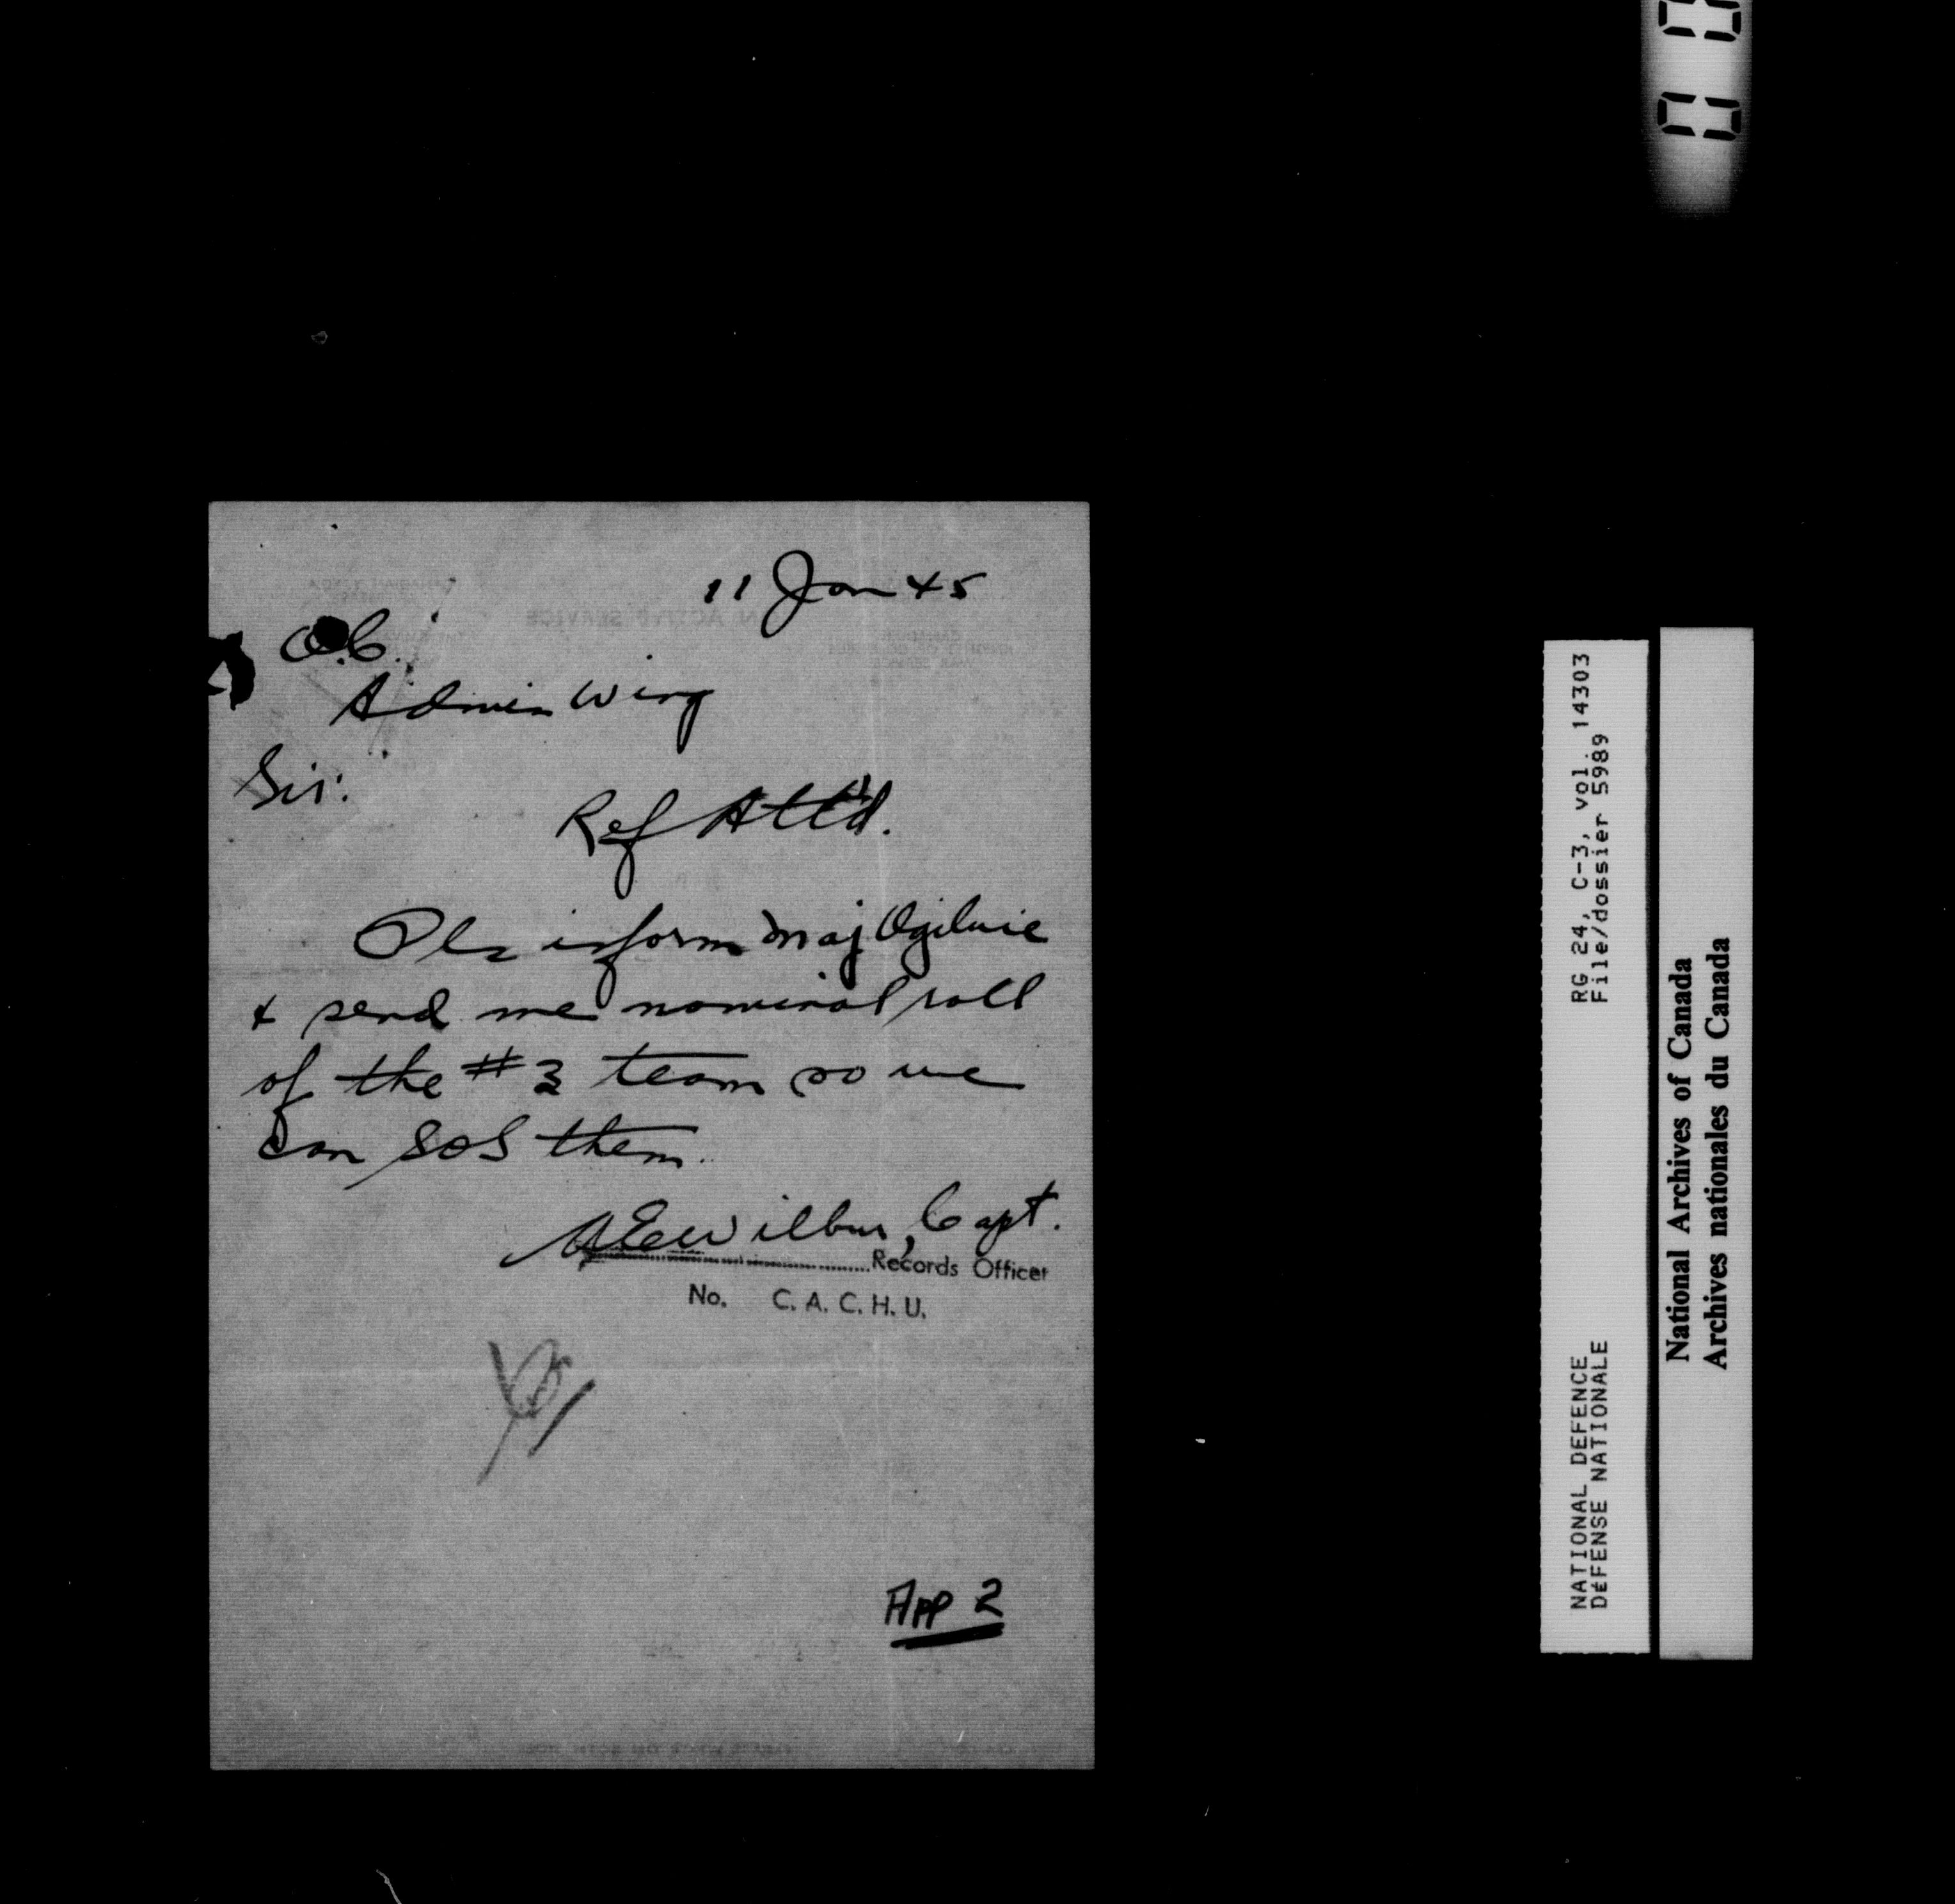 11 Jan 45
O.C.
Admin Wing
Sir:
Ref Att'd.
Pls inform Maj Ogilvie
& send me nominal roll
of the #3 team so we
can SOS them.
Wilbur, Capt.
Records Officer
No. C. A. C. H. U.
App 2
ON ACTIVE SERVICE
RG 24, C-3, vol. 14303
File/dossier 5989
NATIONAL DEFENCE
DÉFENSE NATIONALE
National Archives of Canada
Archives nationales du Canada